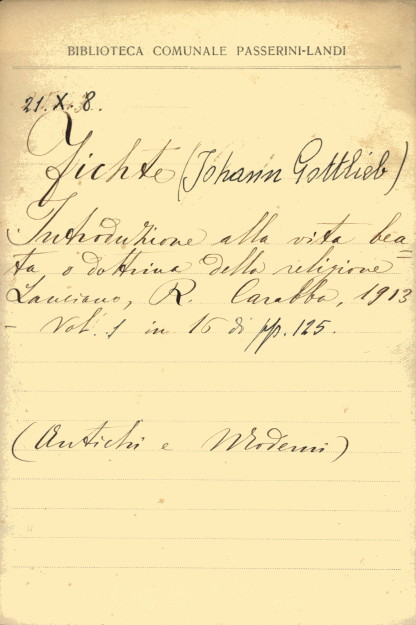 BIBLIOTECA COMUNALE PASSERINI-LANDI
21.X.8.
Fichte (Johann Gottlieb)
Introduzione alla vita bea=
ta o dottrina della religione
Lanciano, R. Carabba, 1913
- Vol. 1 in 16 di pp. 125.
(Antichi e Moderni)